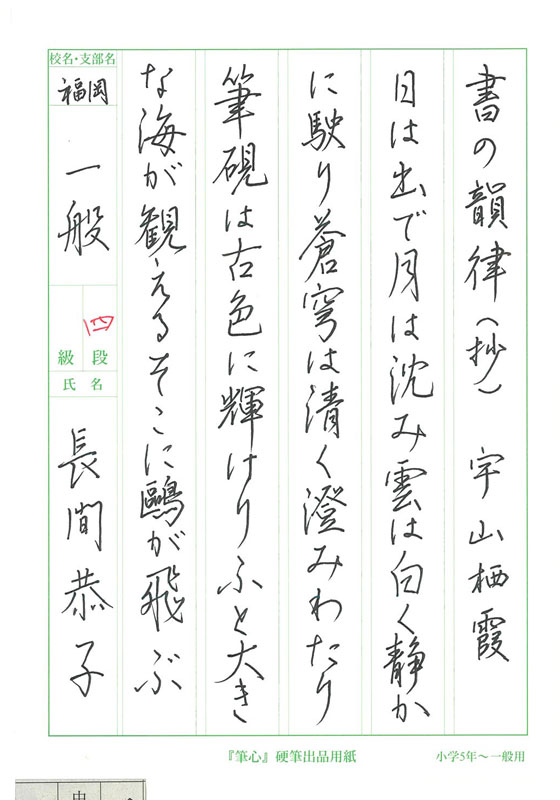 書の韻律(抄) 宇山栖霞
日は出で月は沈み雲は白く静か
に駛り蒼穹は清く澄みわたり
筆硯は古色に輝けりふと大き
な海が観えるそこに鷗が飛ぶ
校名・支部名
福岡
一般
四
級 段
氏名
長間恭子
『筆心』硬筆出品用紙
小学5年〜一般用